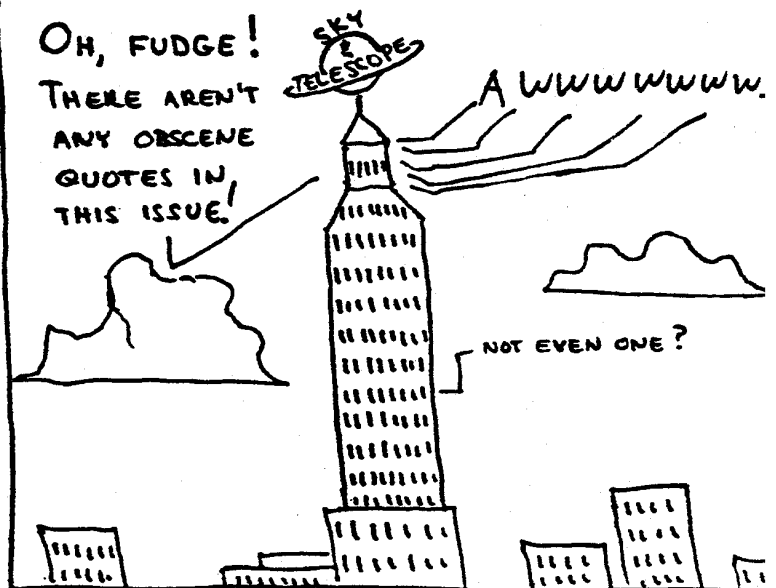 OH, FUDGE!
THERE AREN'T
ANY OBSCENE
QUOTES IN
THIS ISSUE!
SKY
&
TELESCOPE
AWWWWWWW.
NOT EVEN ONE?